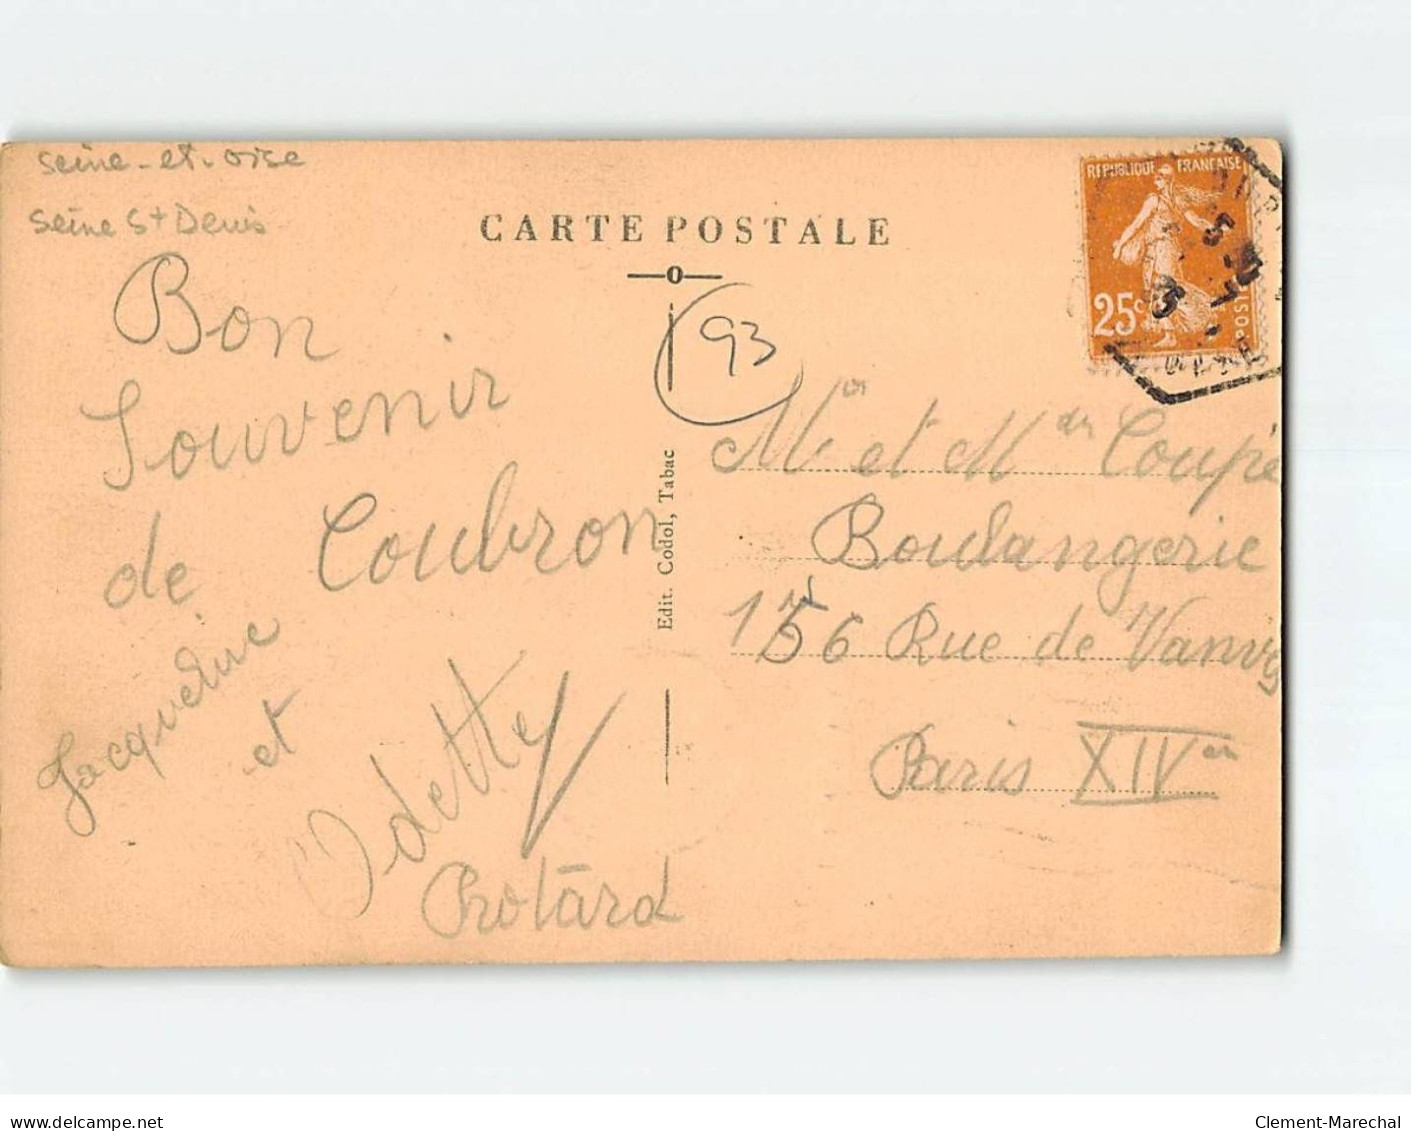 Seine-et-Oise
Seine St Denis
CARTE POSTALE
Bon
Souvenir
de Coubron
Jacqueline
et
Odette
Protard
93
Edit. Codol, Tabac
REPUBLIQUE FRANÇAISE
25c
POSTES
Mr et Mme Coupé
Boulangerie
156 Rue de Vanves
Paris XIVem
delcampe.net
Clement-Marechal